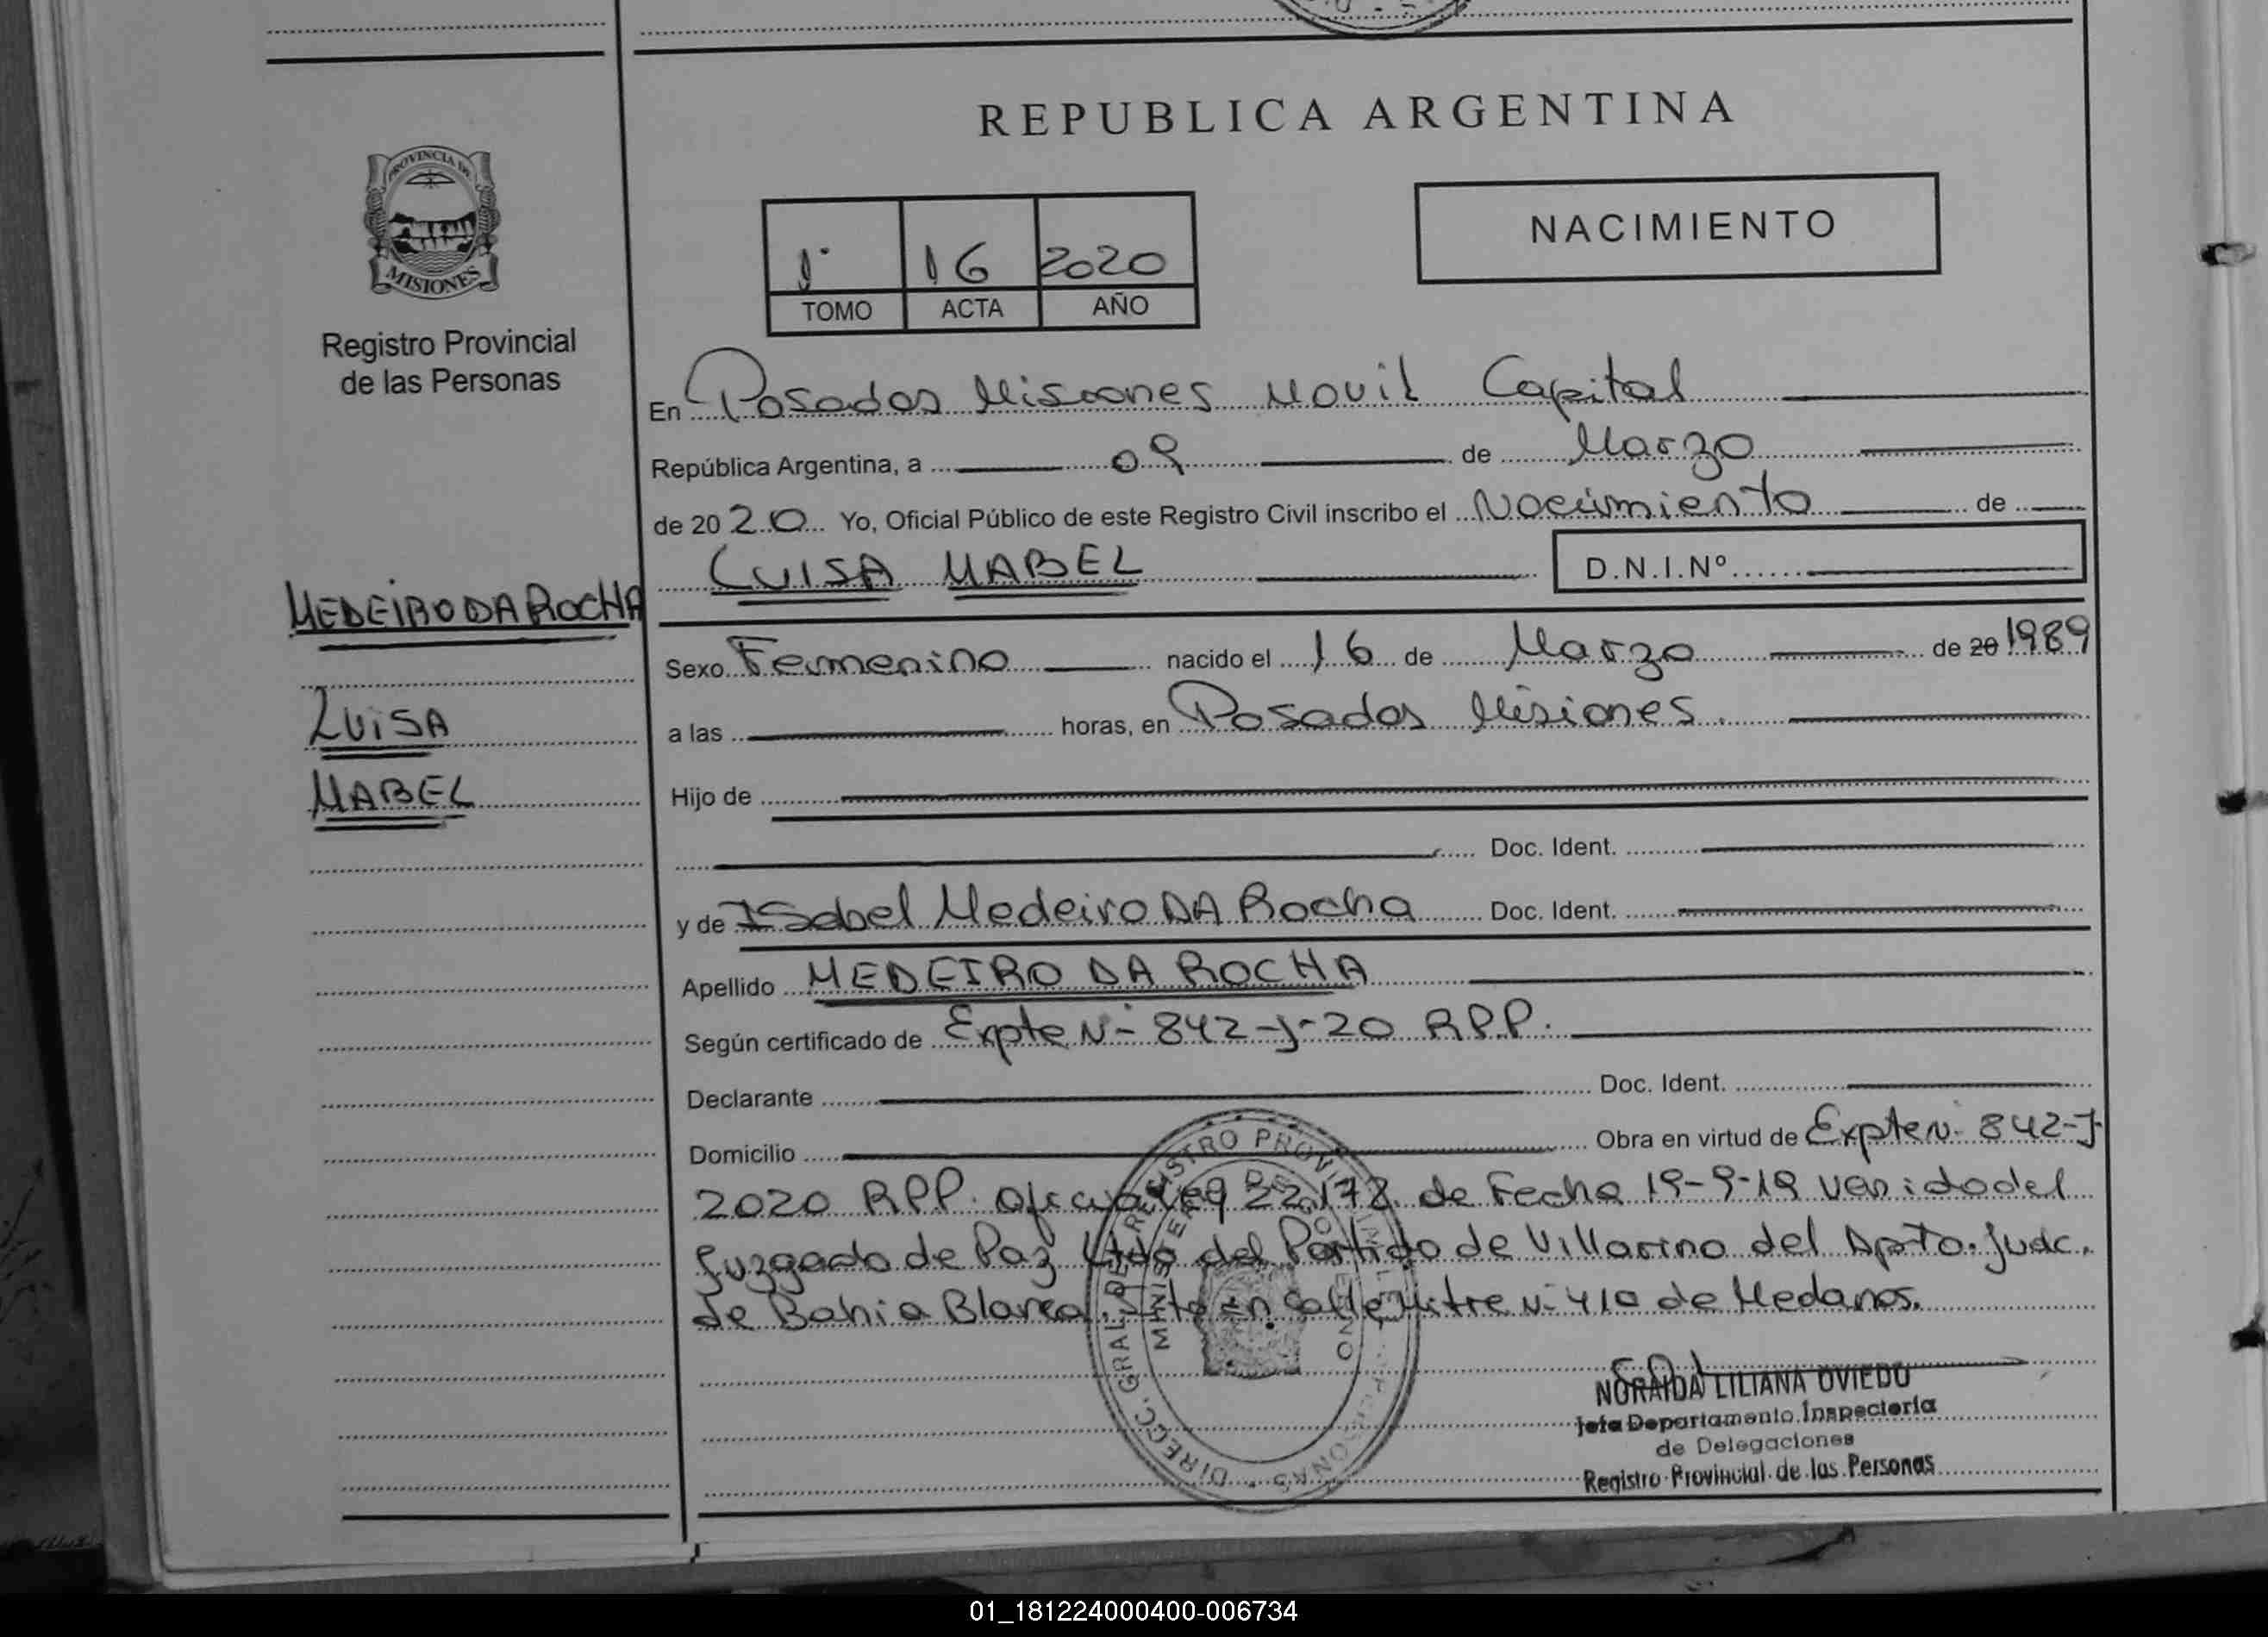 REPUBLICA ARGENTINA
PROVINCIA DE
MISIONES
Registro Provincial
de las Personas
1° 16 2020
TOMO ACTA AÑO
NACIMIENTO
En Posadas Misiones Movil Capital
República Argentina, a 09 de Marzo
de 2020 Yo, Oficial Público de este Registro Civil inscribo el Nacimiento de
LUISA MABEL D.N.I.Nº
MEDEIRO DA ROCHA
LUISA
MABEL
Sexo Femenino nacido el 16 de Marzo de 20 1989
a las horas, en Posadas Misiones.
Hijo de
Doc. Ident.
y de ISabel Medeiro DA Rocha Doc. Ident.
Apellido MEDEIRO DA ROCHA
Según certificado de Expte N- 842-J-20 RPP.
Declarante Doc. Ident.
Domicilio Obra en virtud de Expte N- 842-J-
2020 RPP. 22.172 de Fecha 19-9-19 venido del
Juzgado de Paz Ltdo del Partido de Villarino del Dpto. Judc.
de Bahia Blanca. en Calle Mitre N- 410 de Medanos.
DIRECC. GRAL. DE REGISTRO PROVINCIAL DE PERSONAS
MINISTERIO DE GOBIERNO
NORAIDA LILIANA OVIEDO
Jefa Departamento Inspectoría
de Delegaciones
Registro Provincial de las Personas
01_181224000400-006734